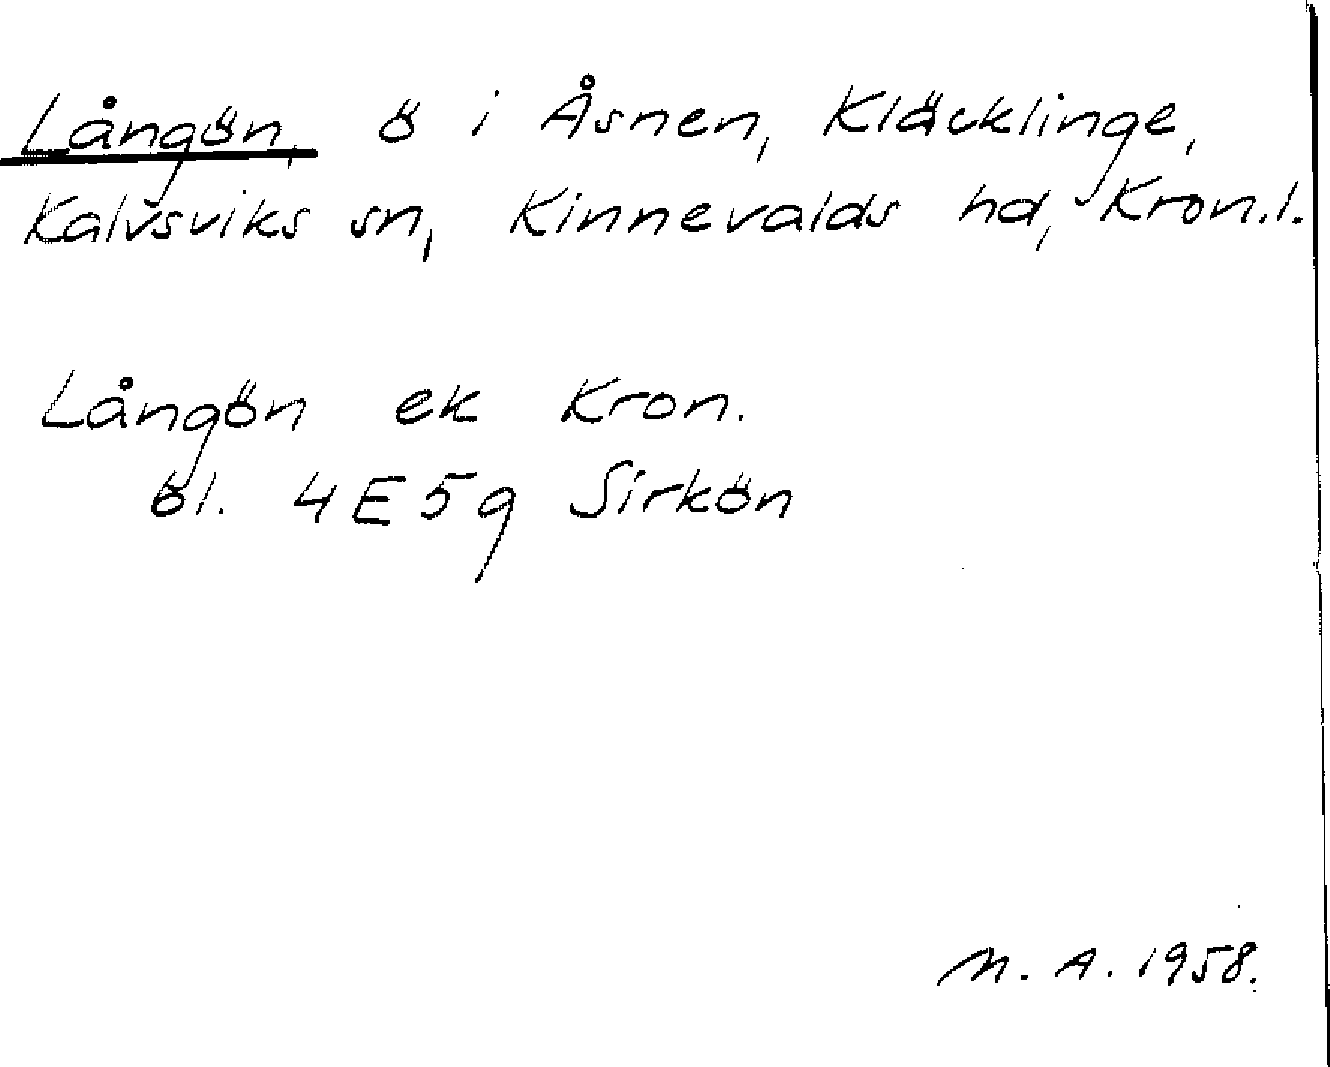 Långön, ö i Åsnen, Kläcklinge,
Kalvsviks sn, Kinnevalds hd, Kron.l.
Långön ek Kron.
bl. 4E5g Sirkön
M. A. 1958.